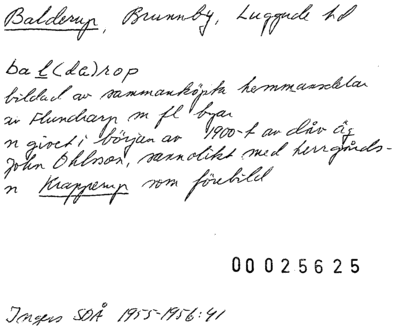 Balderup, Brunnby, Luggude hd
bal(da)rop
bildad av sammanköpta hemmansdelar
av Flundrarp m fl byar
n givet i början av 1900-t av dåv äg
John Ohlsson, sannolikt med herrgårds-
n Krapperup som förebild
00025625
Ingers SOÅ 1955-1956:41